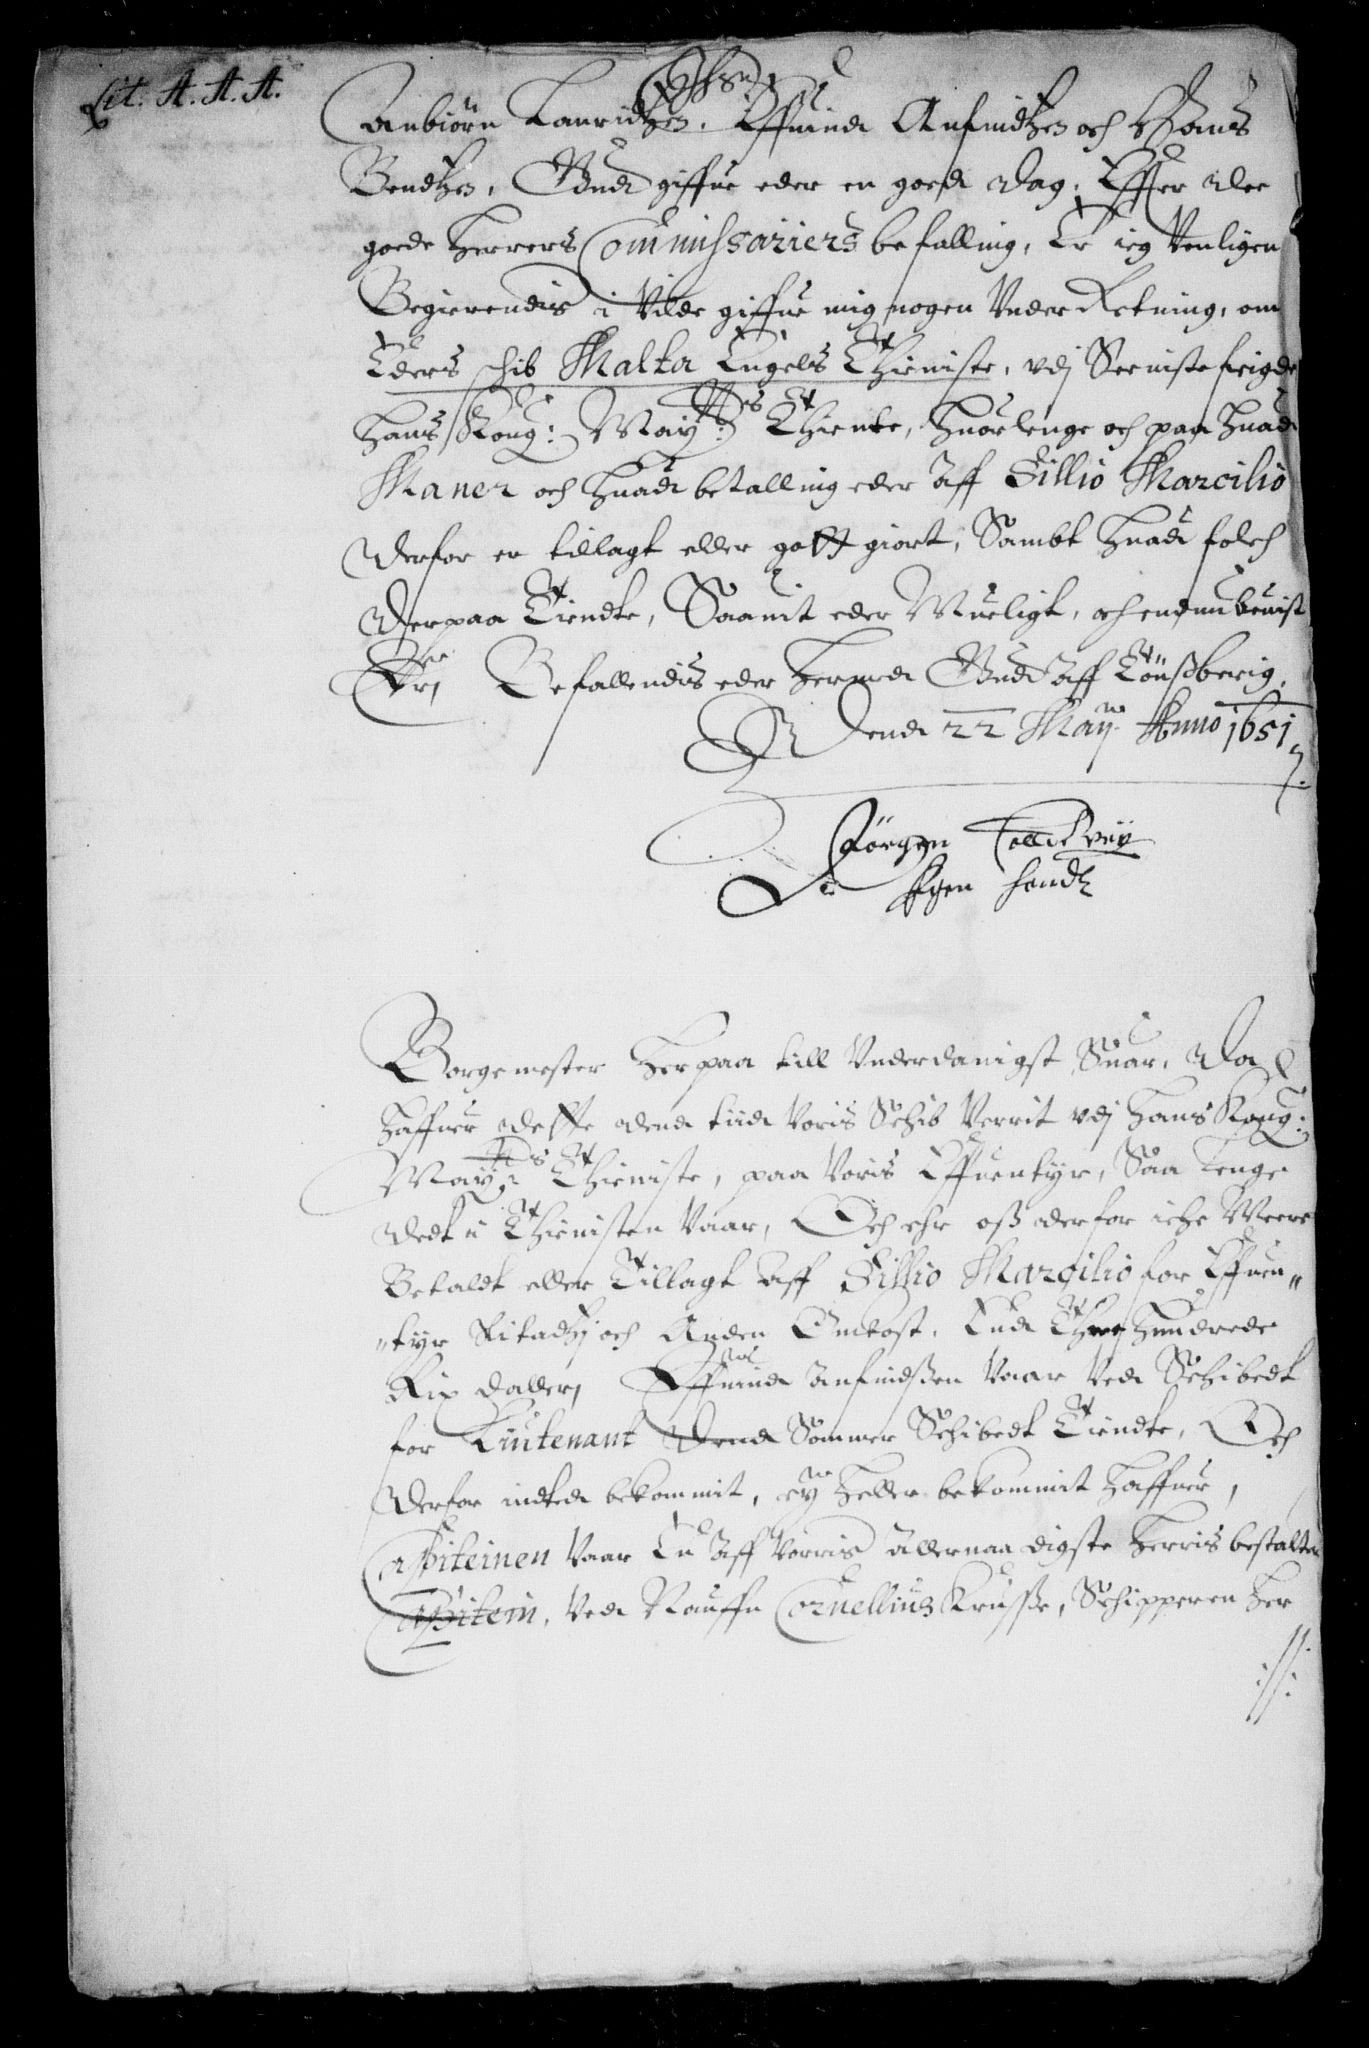 Lit. A. A. A.
Anbiörn Lauridtzen, Effuind Anfindtzen och Hans
Bendtzen, Gud giffue eder en goed dag, Effter de
goede Herrers Commissariers befalling, Er ieg Venligen
Begierendis i Vilde giffue mig nogen Vnder Retning, om
Eders schib Malta Engels Thieniste, vdj Seeniste feigde
Hans Kong: May:ts Thieniste, huor lenge och paa huad
Maner och huad betalling eder Aff Sillio Marcilio
derfor er tillagt eller gott giort, Sambt huad folch
derpaa Tiendte, Saauit eder Mueligt, och endnu beuist
Er, Befallendis eder hermed Gud Aff Tönßberig,
Dend 22 Maij Anno 1651
Jörgen
Egen handt
Borgemester Herpaa till Vnderdanigst Suar, da
haffuer dette dend tiid Voris Schib Verrit vdj Hans Kong:
May:ts Thieniste, paa Voris Effuentyr, Saa Lenge
dedt i Thienisten Vaar, Och ehr oß derfor iche Meere
Betaldt eller Tillagt Aff Sillio Marcilio for Effuen"
"tyr och Anden Omkost, End Threj Hundrede
Rix daller, Effuind Anfindßen Vaar Ved Schibedt
for Liutenant Dend Sommer Schibedt Tiendte, Och
derfor indted bekommit, eÿ heller bekommit haffuer,
Capiteinen Vaar En Aff Vorris Allernaadigste Herris bestalter
Capitein, Ved Naffn Cornellius Krusße, Schipperen her
://: